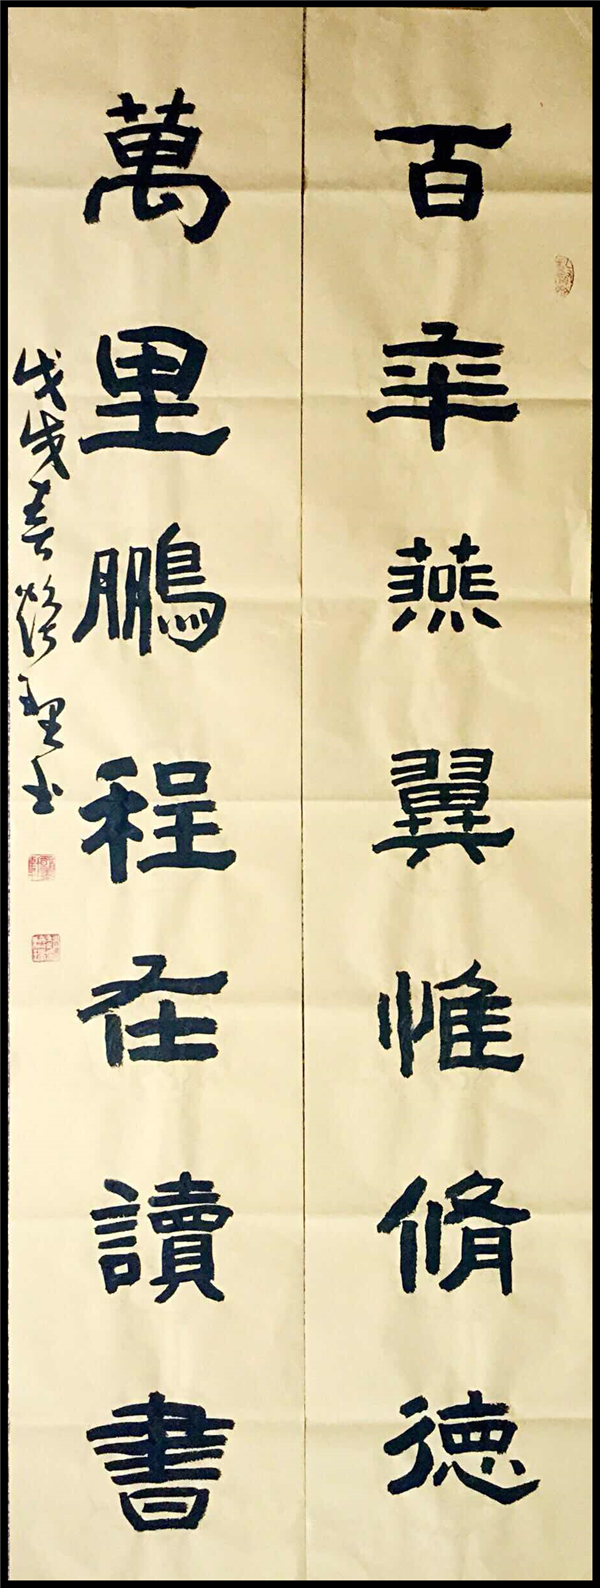 百年燕翼惟脩德
萬里鵬程在讀書
戊戌春